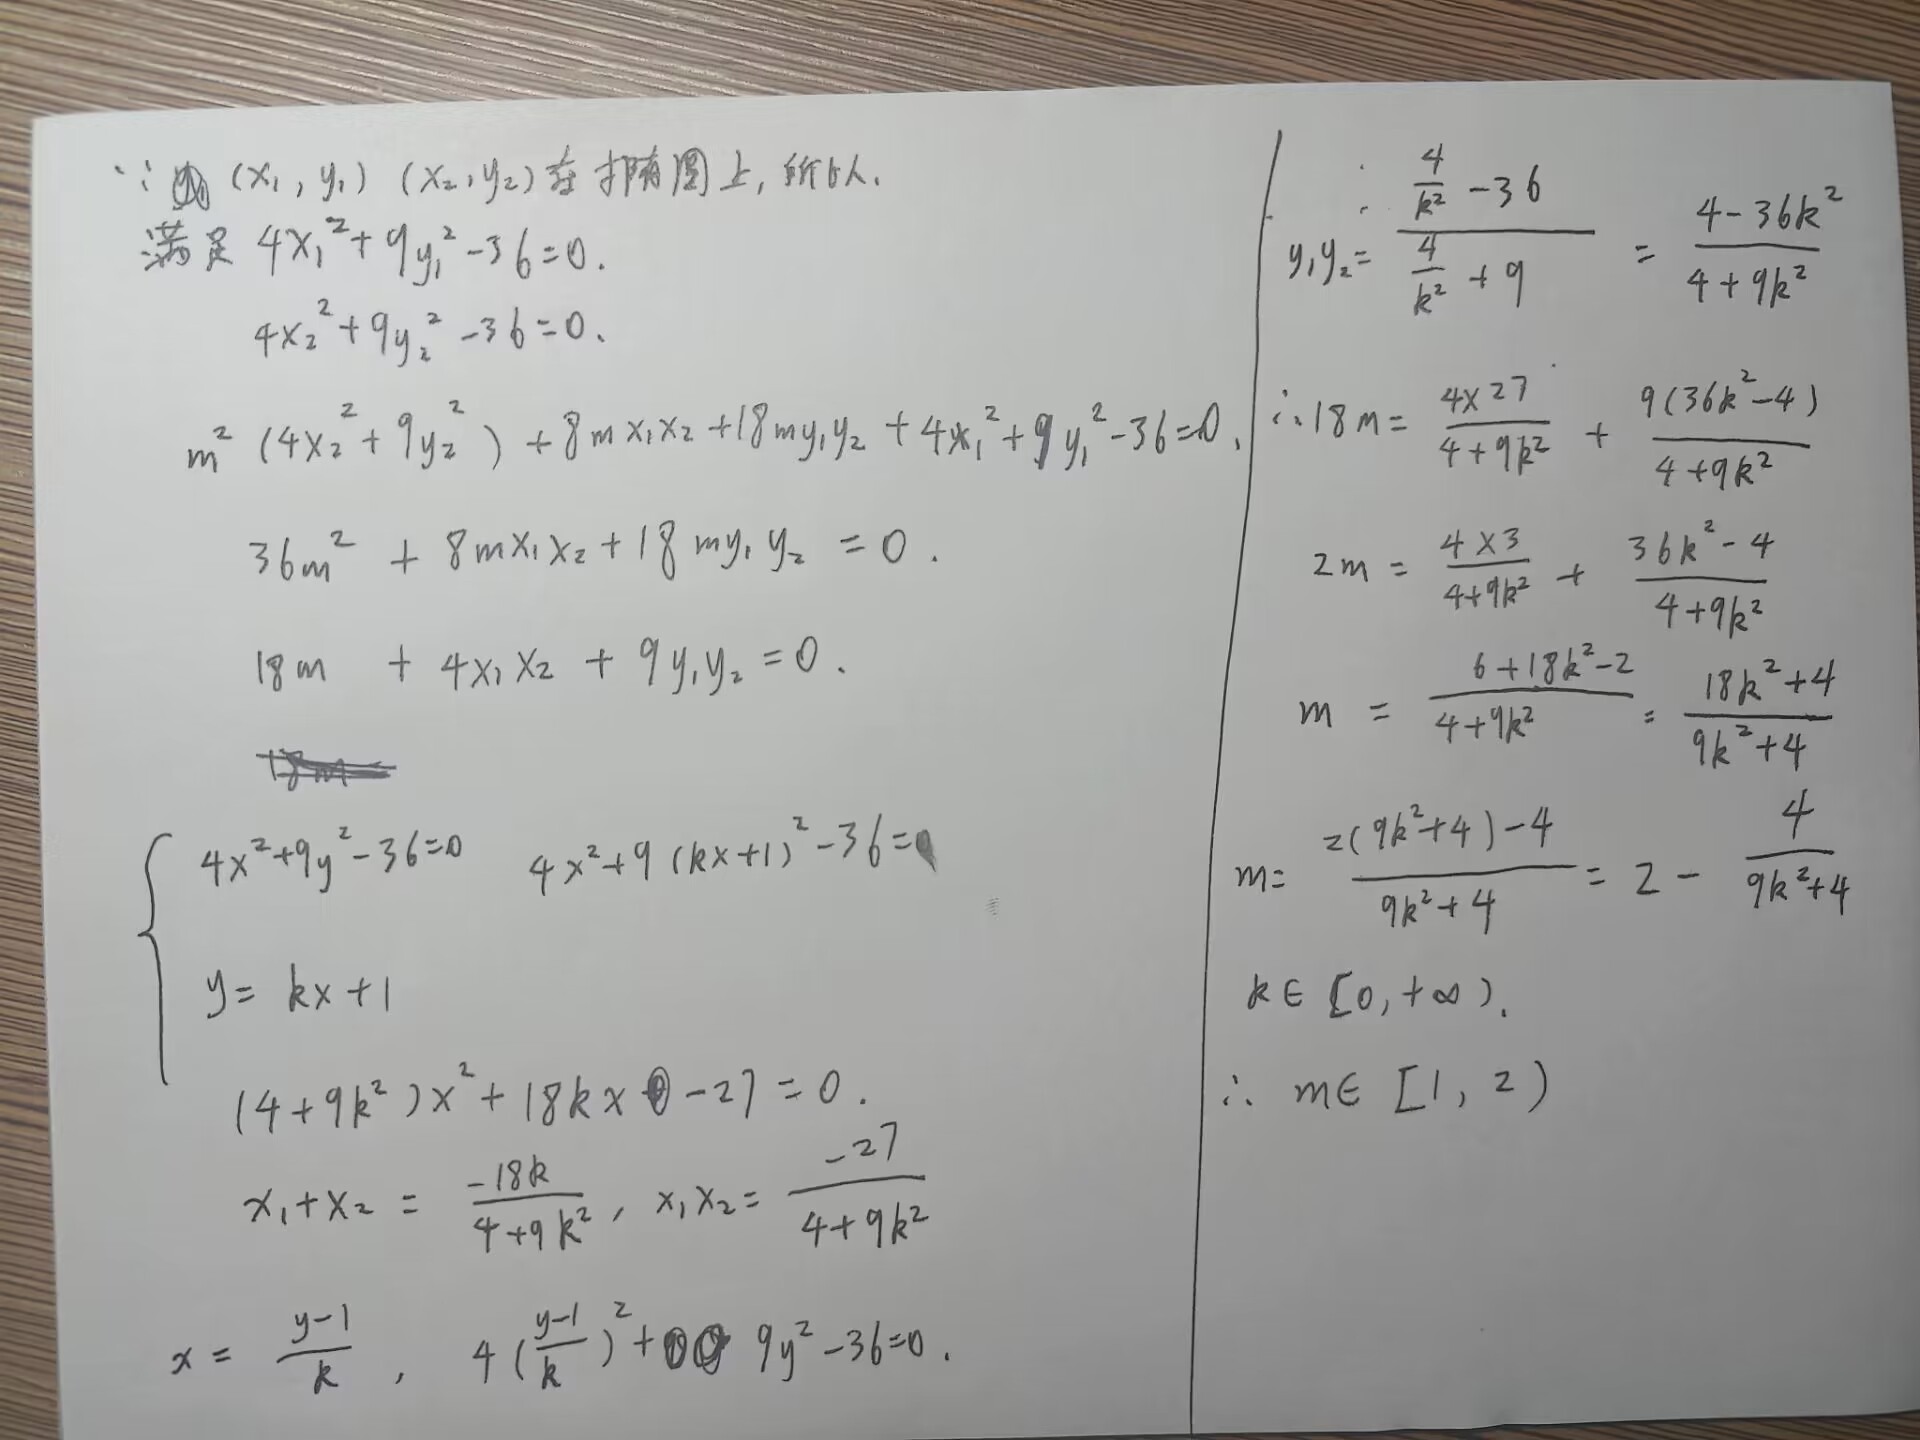 ∵ (x₁, y₁) (x₂, y₂) 在椭圆上, 所以.
满足 4x₁² + 9y₁² - 36 = 0.
4x₂² + 9y₂² - 36 = 0.
m² (4x₂² + 9y₂²) + 8mx₁x₂ + 18my₁y₂ + 4x₁² + 9y₁² - 36 = 0.
36m² + 8mx₁x₂ + 18my₁y₂ = 0.
18m + 4x₁x₂ + 9y₁y₂ = 0.
{ 4x² + 9y² - 36 = 0   4x² + 9(kx+1)² - 36 = 0
y = kx + 1
(4 + 9k²)x² + 18kx - 27 = 0.
x₁ + x₂ = -18k/(4+9k²), x₁x₂ = -27/(4+9k²)
x = (y-1)/k, 4((y-1)/k)² + 9y² - 36 = 0.
y₁y₂ = (4/k² - 36)/(4/k² + 9) = (4 - 36k²)/(4 + 9k²)
∴ 18m = (4×27)/(4+9k²) + 9(36k²-4)/(4+9k²)
2m = (4×3)/(4+9k²) + (36k²-4)/(4+9k²)
m = (6+18k²-2)/(4+9k²) = (18k²+4)/(9k²+4)
m = (2(9k²+4)-4)/(9k²+4) = 2 - 4/(9k²+4)
k∈[0,+∞).
∴ m∈[1, 2)